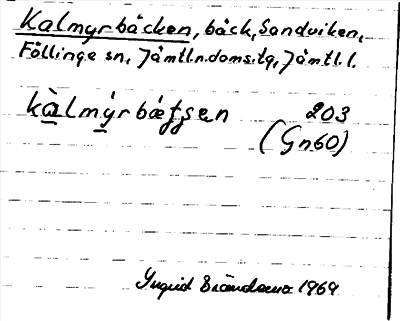 Kalmyrbäcken, bäck, Sandviken,
Föllinge sn, Jämtl.n.doms.tg, Jämtl.l.
kàlmýrbæƫʂen 203
(Gn60)
Ingrid 1969